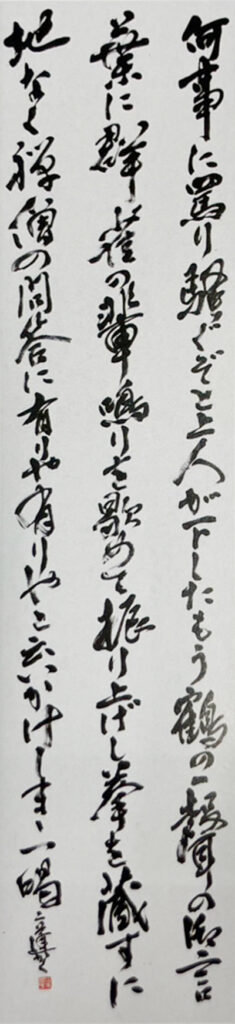 何事に罵り騒ぐぞと上人が下したもう鶴の一聲の御言
葉に群雀の輩鳴りを歇めて振り上げし拳を蔵すに
地なく禅僧の問答に有りや有りやと云いかけしまゝ一喝